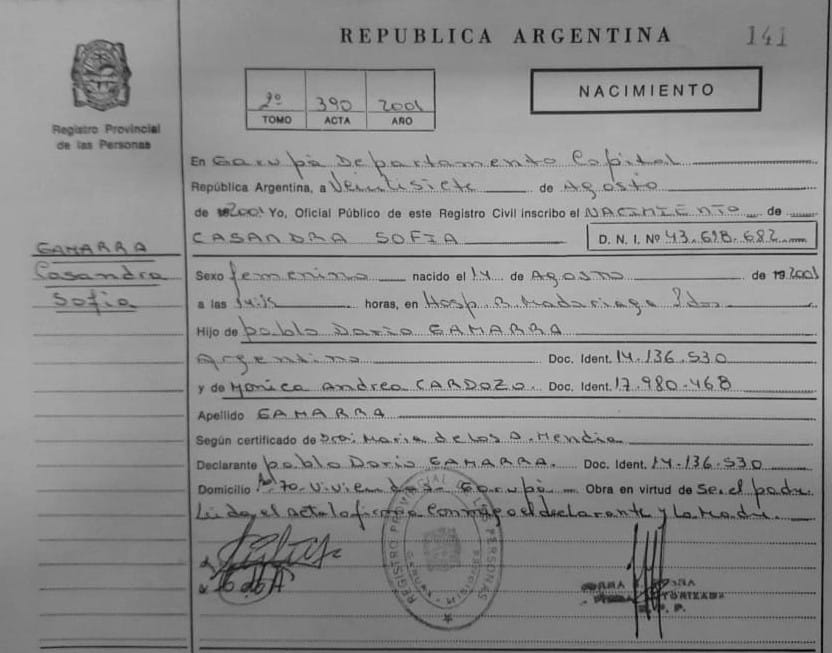 REPUBLICA ARGENTINA 141
Registro Provincial
de las Personas
2º 390 2001
TOMO ACTA AÑO
NACIMIENTO
En Garupá Departamento Capital
República Argentina, a Veintisiete de Agosto
de 2001 Yo, Oficial Público de este Registro Civil inscribo el NACIMIENTO de
CASANDRA SOFIA D. N. I. Nº 43.628.682
GAMARRA
Casandra
Sofia
Sexo femenino nacido el 14 de Agosto de 2001
a las horas, en Hosp. R. Madariaga Pdas
Hijo de pablo Dario GAMARRA
Argentino Doc. Ident. 14.136.530
y de Monica Andrea CARDOZO. Doc. Ident. 17.980.468
Apellido GAMARRA
Según certificado de Dra: Maria de los A. Mendia
Declarante pablo Dario GAMARRA. Doc. Ident. 14.136.530
Domicilio 70 Viviendas Garupá Obra en virtud de Ser el padre
Leida el acta la firma conmigo el declarante y La Madre.
REGISTRO PROVINCIAL DE LAS PERSONAS